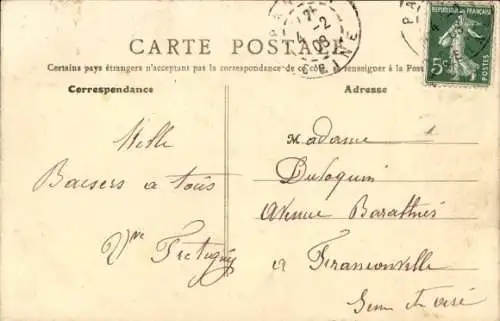 CARTE POSTALE
Certains pays étrangers n'acceptant pas la correspondance de ce côté, se renseigner à la Poste
Correspondance
Adresse
RÉPUBLIQUE FRANÇAISE
5c
POSTES
PARIS
4 - 2
09
SEINE
Mille
Baisers à tous
Vve
Madame
Avenue
à Franconville
Seine et Oise